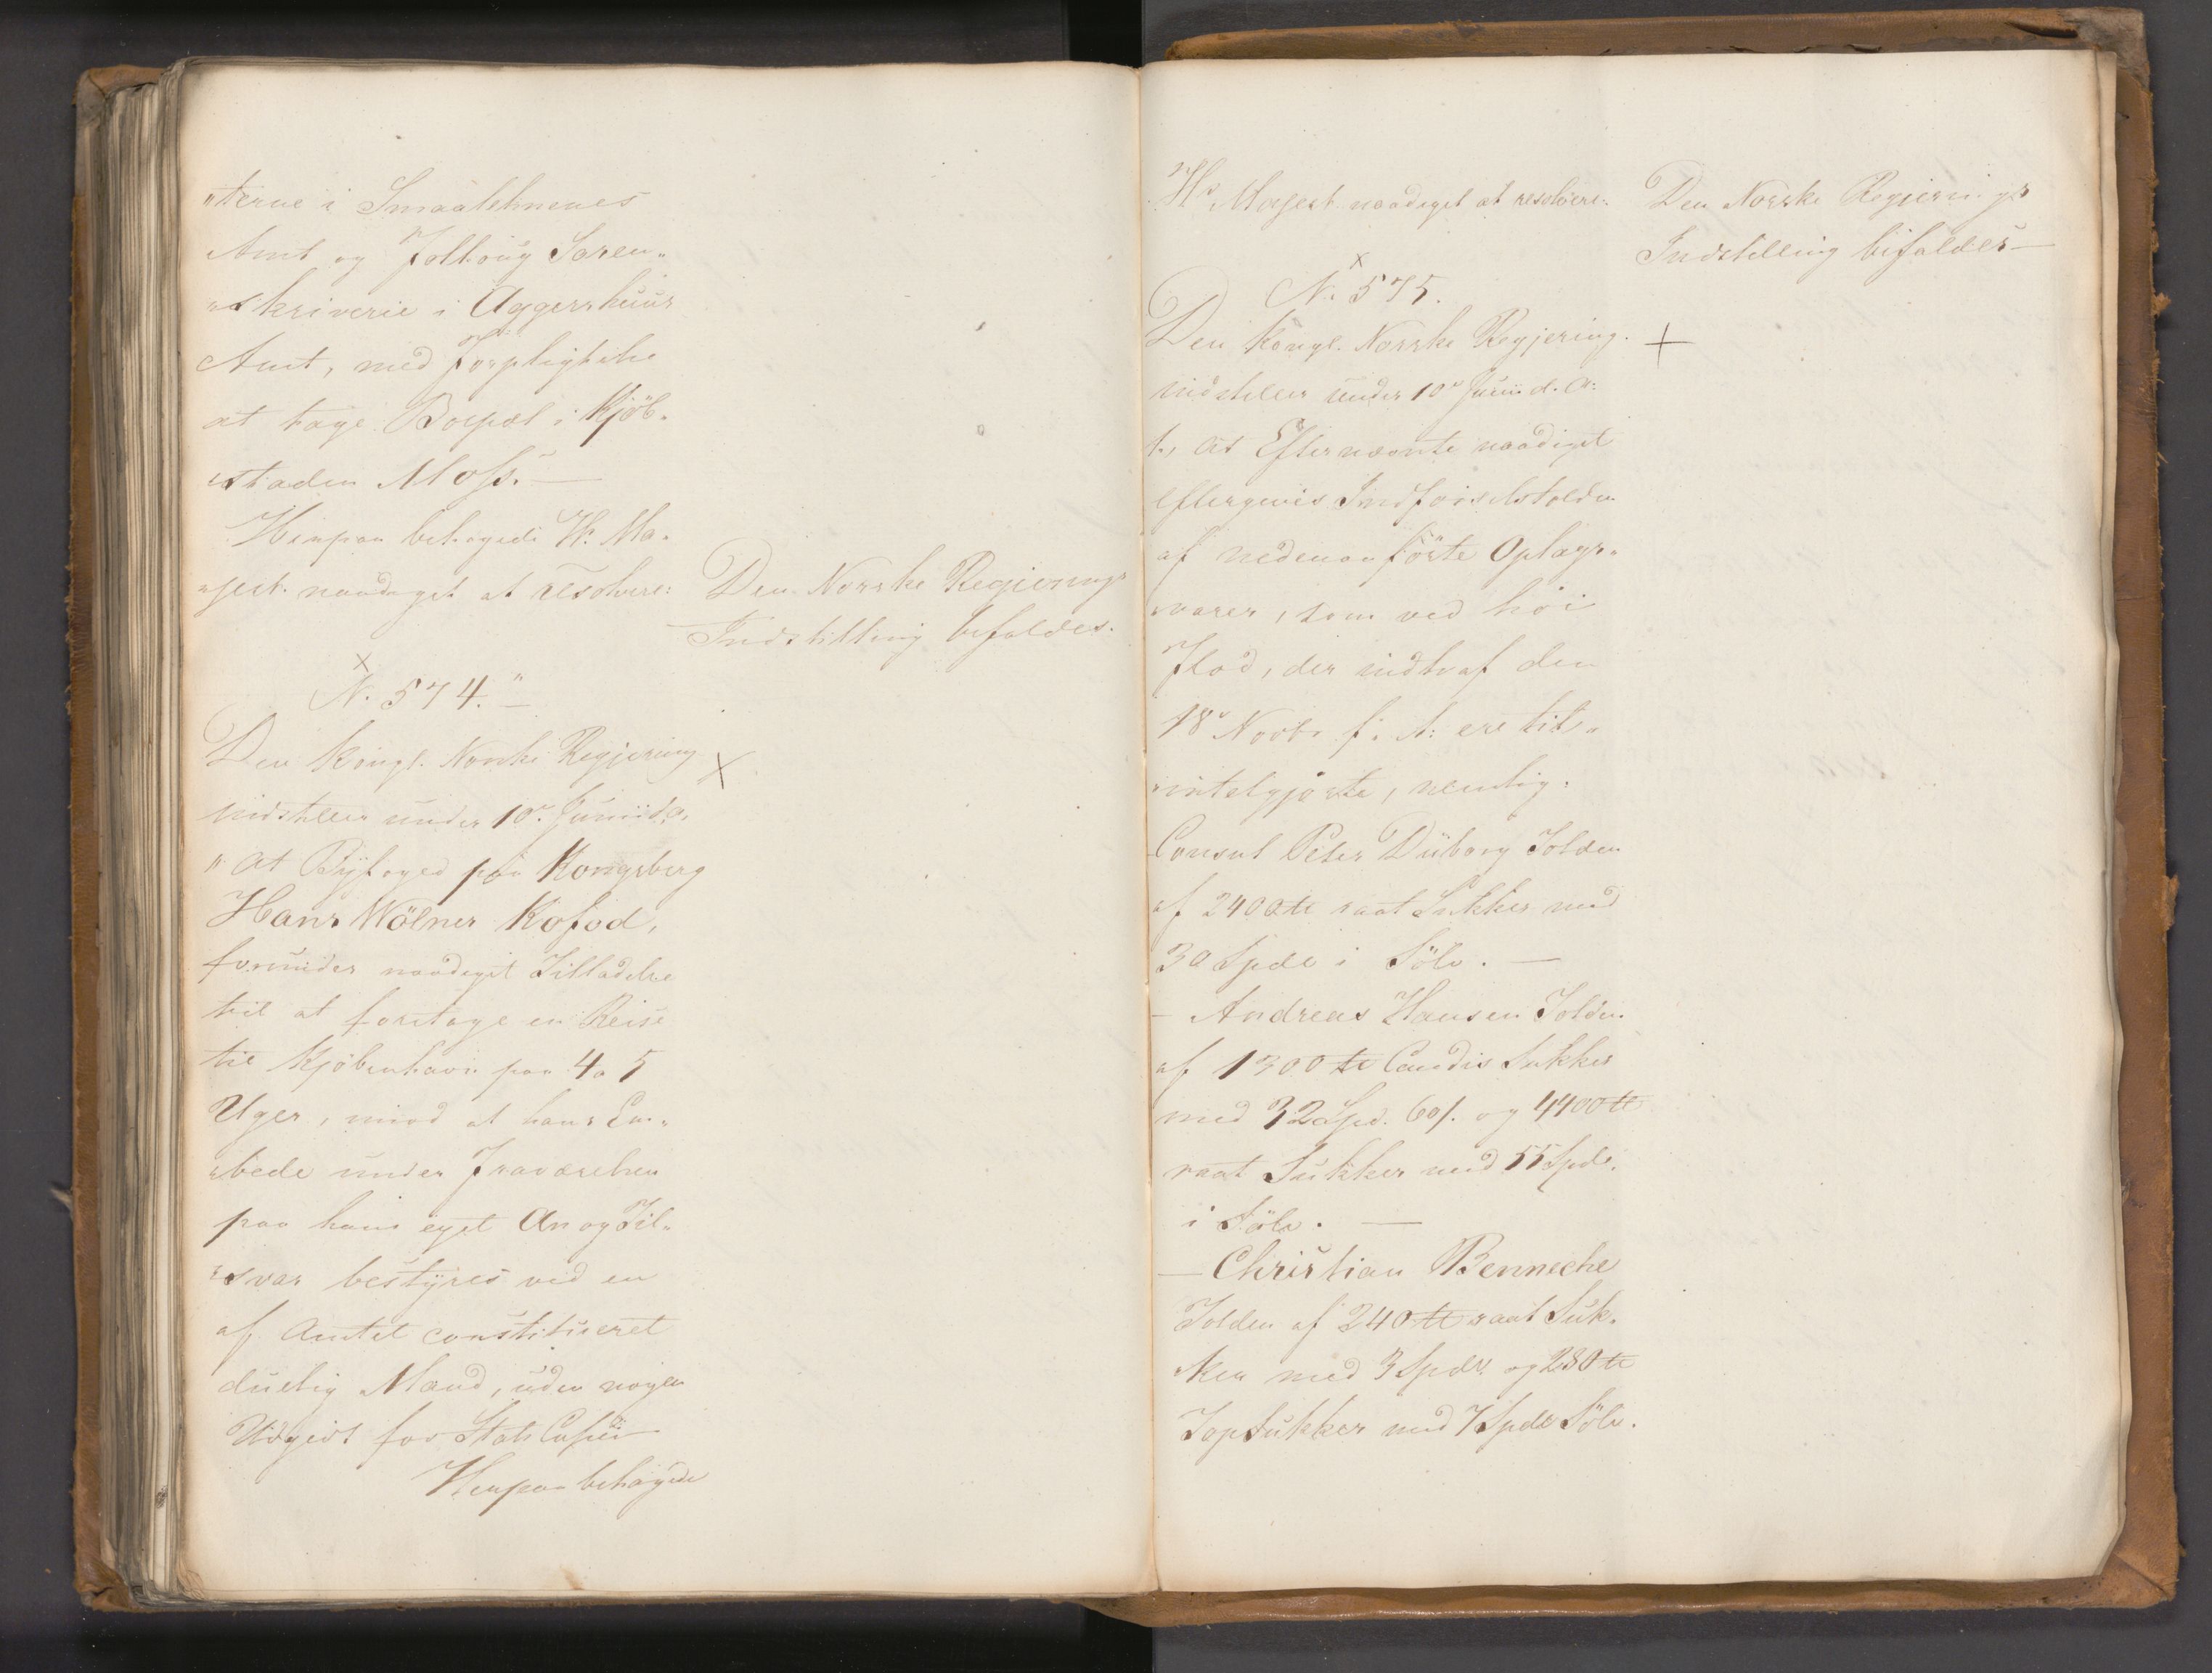 "terne i Smaalehnenes
Amt og Jolloug Soren„
„skriverie i Aggershuus
Amt, med Forpligtelse
at tage Bopæl i Kjöb„
„staden Moss. —
Herpaa behagede H. Ma„
„jest. naadigst at resolvere:
Den Norske Regjerings
Indstilling bifaldes.
N. 574."
Den kongl. Norske Regjering
indstiller under 10de Junii d. a.
"at Byfoged paa Kongsberg
Hans Wölner Kofod,
forundes naadigst Tilladelse
til at foretage en Reise
til Kjöbenhavn paa 4 a 5
Uger, imod at hans Em„
„bede under Fraværelsen
paa hans eget An og Til„
„svar bestyres ved en
af Amtet constitueret
duelig Mand, uden nogen
Udgivt for Stats Cassen —
Herpaa behagede
Hs Majest. naadigst at resolvere:
Den Norske Regjerings
Indstilling bifaldes —
N. 575.
Den kongl. Norske Regjering
indstiller under 10de Junii d. A:
1., at Efternævnte naadigst
eftergives Indförselstolden
af nedenanförte Oplags„
„varer, som ved höi
Flod, der indtraf den
18de Novbr f. A: ere til„
„intetgjorte, nemlig:
Consul Peter Düborg Tolden
af 2400 ℔ raat Sukker med
30 Spdr i Sölv. —
— Andreas Hansen Tolden
af 1300 ℔ Candis Sukker
med 32 Spd. 60/. og 4400 ℔
raat Sukker med 55 Spdr.
i Sölv. —
— Christian Benneche
Tolden af 240 ℔ raat Suk„
„ker med 3 Spdr. og 280 ℔
Top Sukker med 7 Spdr Sölv.